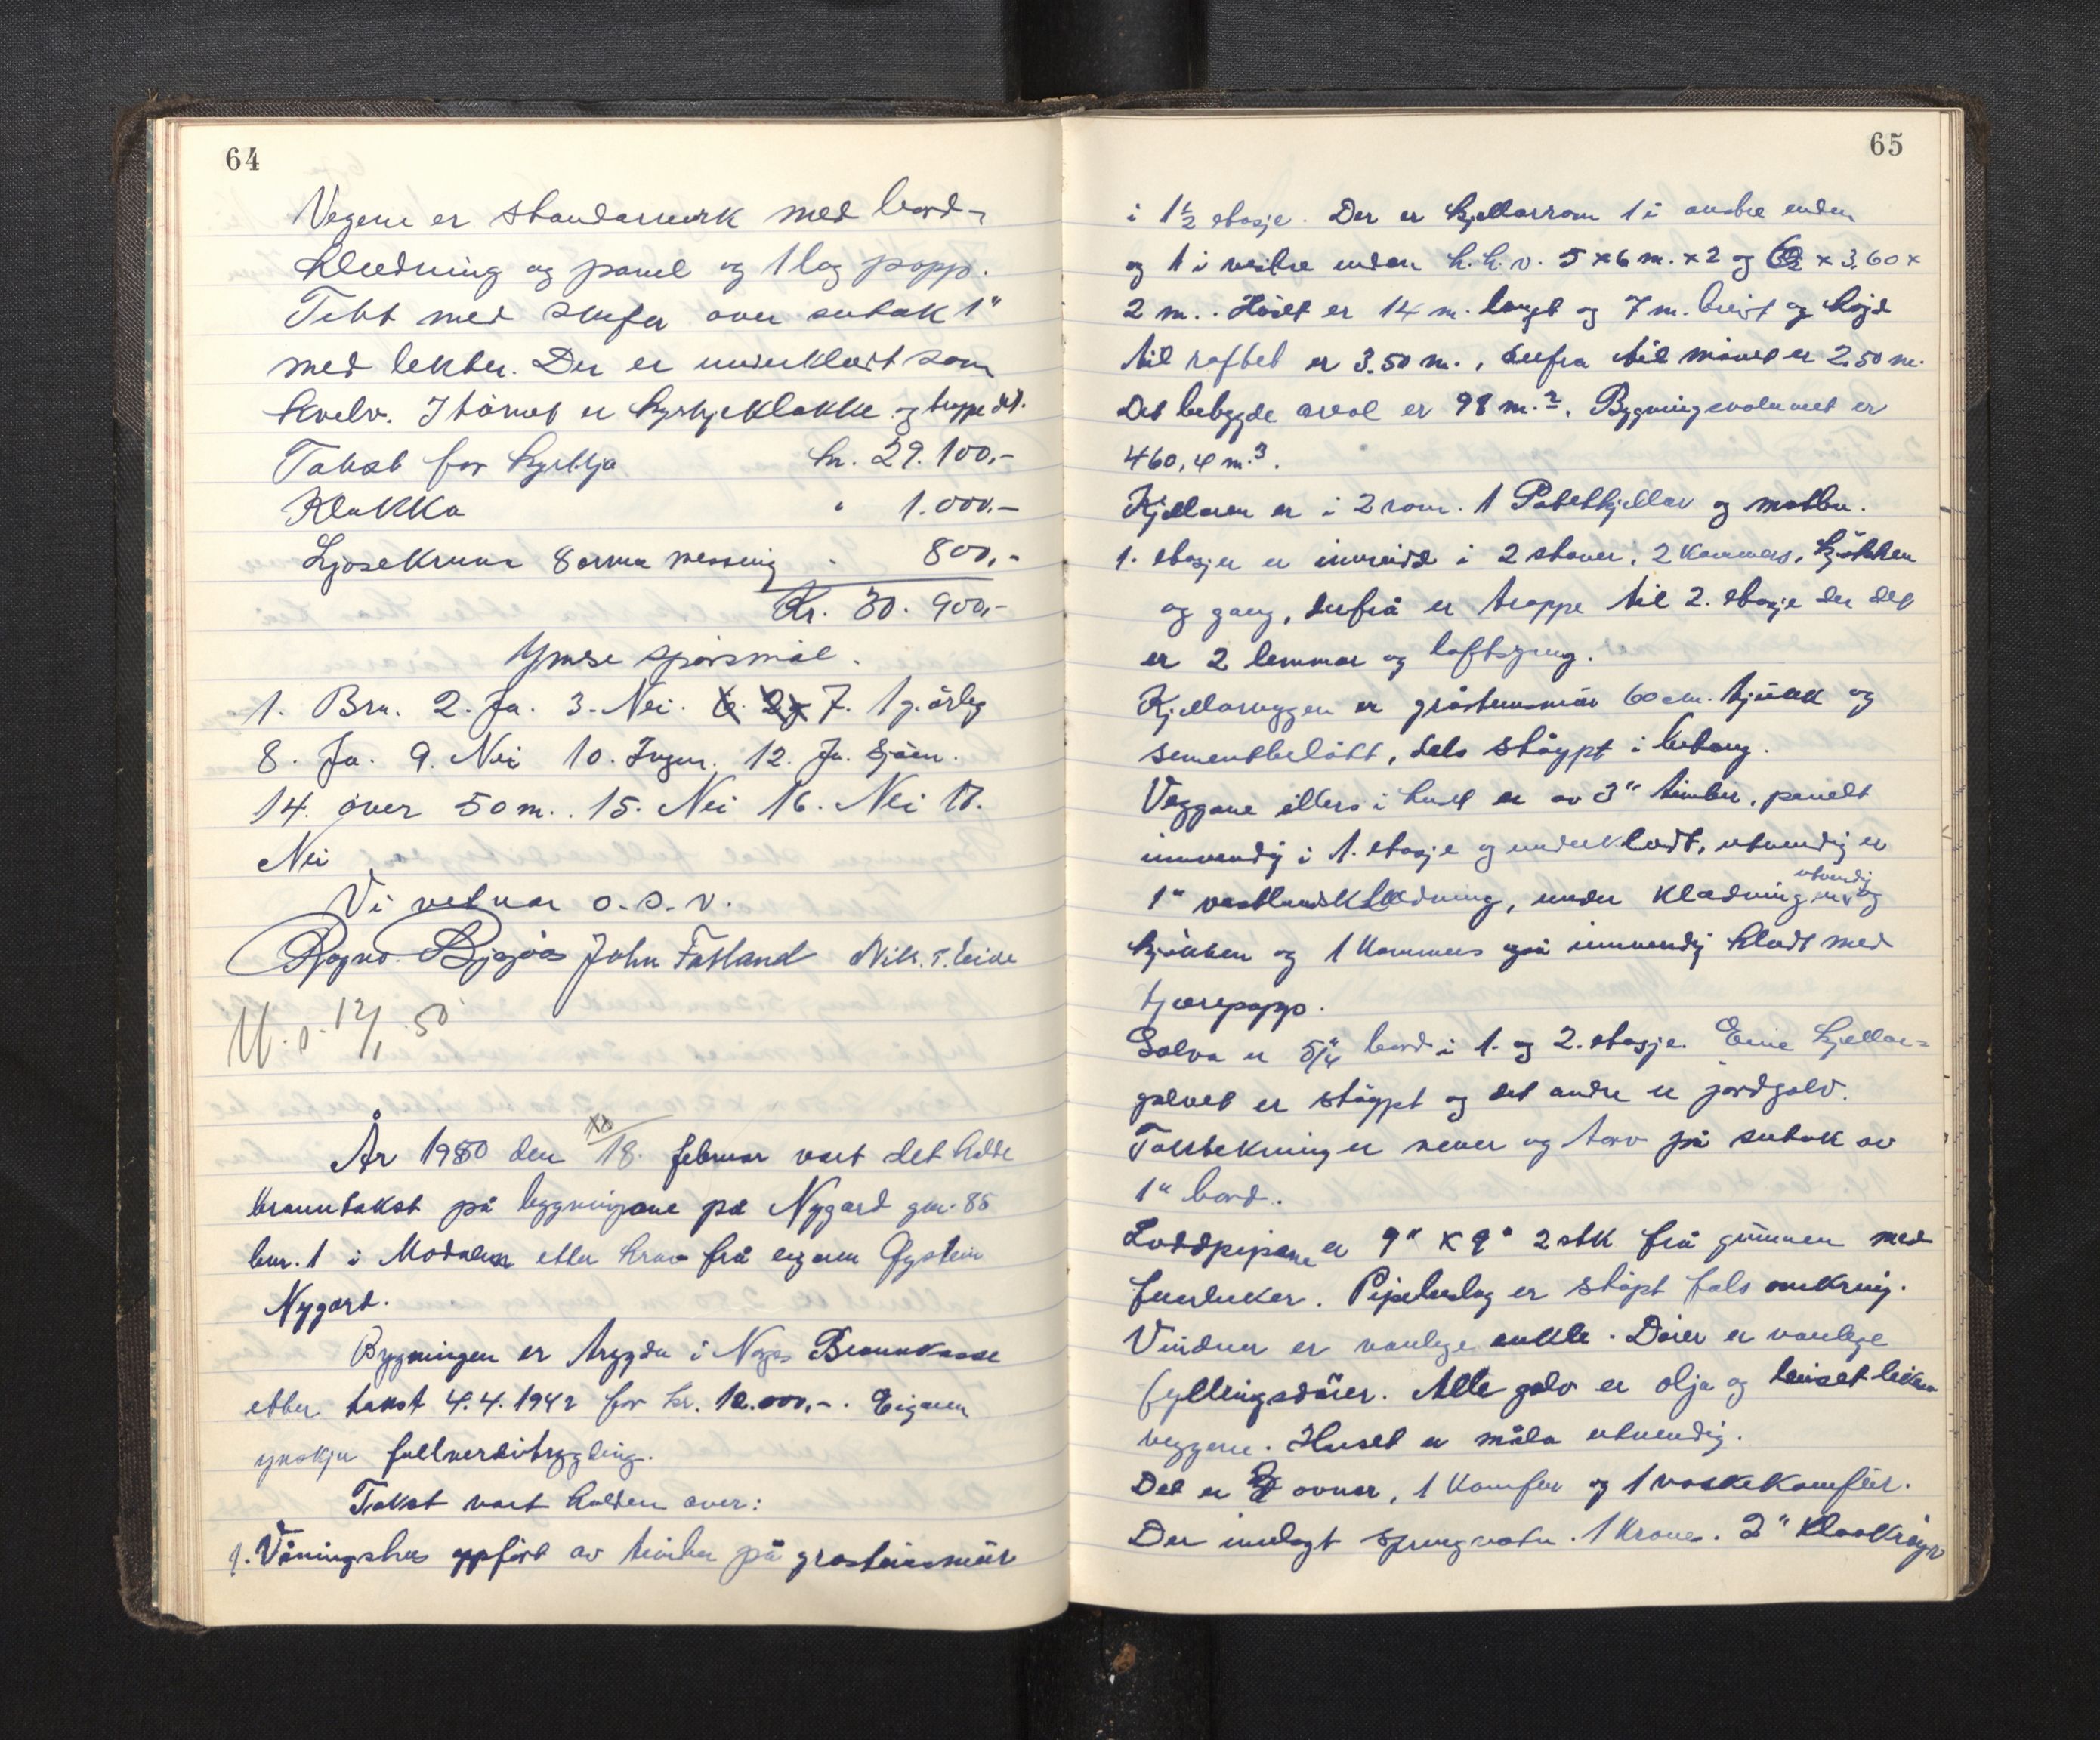 64
Vegene er standarverk med bord-
kledning og panel og 1 lag papp.
Tekt med skifer over sutak 1"
med lekter. Der er underkledt som
kvelv. I tårnet er kyrkjeklokke og trappe del.
Takst for kyrkja kr. 29.100,-
Klokka " 1.000.-
Ljosekruna 8 arma messing " 800,-
Kr. 30.900,-
Ymse spörsmål.
1. Bra. 2. Ja. 3. Nei. 7. 1 g. årleg
8. Ja. 9. Nei 10. Ingen. 12. Ja. Sjöen.
14. över 50 m.. 15. Nei 16. Nei 17.
Nei
Vi vetnar o.s.v.
John Fatland Nik. T. Eide
U.s. 12/1.50
År 1950 den 18. februar vart det halde
branntakst på bygningane på Nygard gnr. 85
bnr. 1 i Modalen etter krav frå eigaren Øystein
Nygard.
Bygningen er trygda i Norges Brannkasse
etter takst 4.4.1942 for kr. 12.000,-. Eigaren
ynskjer fullverditrygding.
Takst vart halden over:
1. Våningshus oppfört av timber på grasteinsmúr
65
i 1½ etasje. Der er kjellarrom 1 i austre enden
og 1 i vestre enden h.h.v. 5 x 6 m. x 2 og x 3.60 x
2 m.. Húset er 14 m. langt og 7 m. breidt og högd
til raftet er 3.50 m., derfra til mönet er 2.50 m.
Det bebygde areal er 98 m.². Bygningsvolumet er
460,4 m.³.
Kjellaren er i 2 rom. 1 Potetkjellar og matbu.
1. etasjer er innreidd i 2 stover, 2 kammers, kjökken
og gang, derfrå er trappe til 2. etasje der det
er 2 lemmar og loftsgang.
Kjellarveggen er gråsteinsmúr 60 cm. tjúkk og
sementbelått, dels stöypt i betong.
Veggane ellers i huset er av 3" timber, panelt
innvendig i 1. etasje og underkledt, utvendig er
1" vestlandskledning, under kledningen utvendig og
kjökken og 1 kammers også innvendig kledt med
tjærepapp.
Golva er 5/4" bord i 1. og 2. etasje. Eine kjellar=
golvet er stöypt og det andre er jordgolv.
Taktekning er never og torv på sutak av
1" bord.
Loddpipene er 9" x 9" 2 stk frå grunnen med
feierluker. Pipebeslag er stöpt fals omkring.
Vinduer er vanlege enkle. Dörer er vanlege
fyllingsdörer. Alle golv er olja og beiset likeså
veggene. Huset er måla utvendig.
Det er ovner, 1 komfur og 1 vaskekomfúr.
Der innlagt springvatn. 1 krane. 2" kloakkröyr